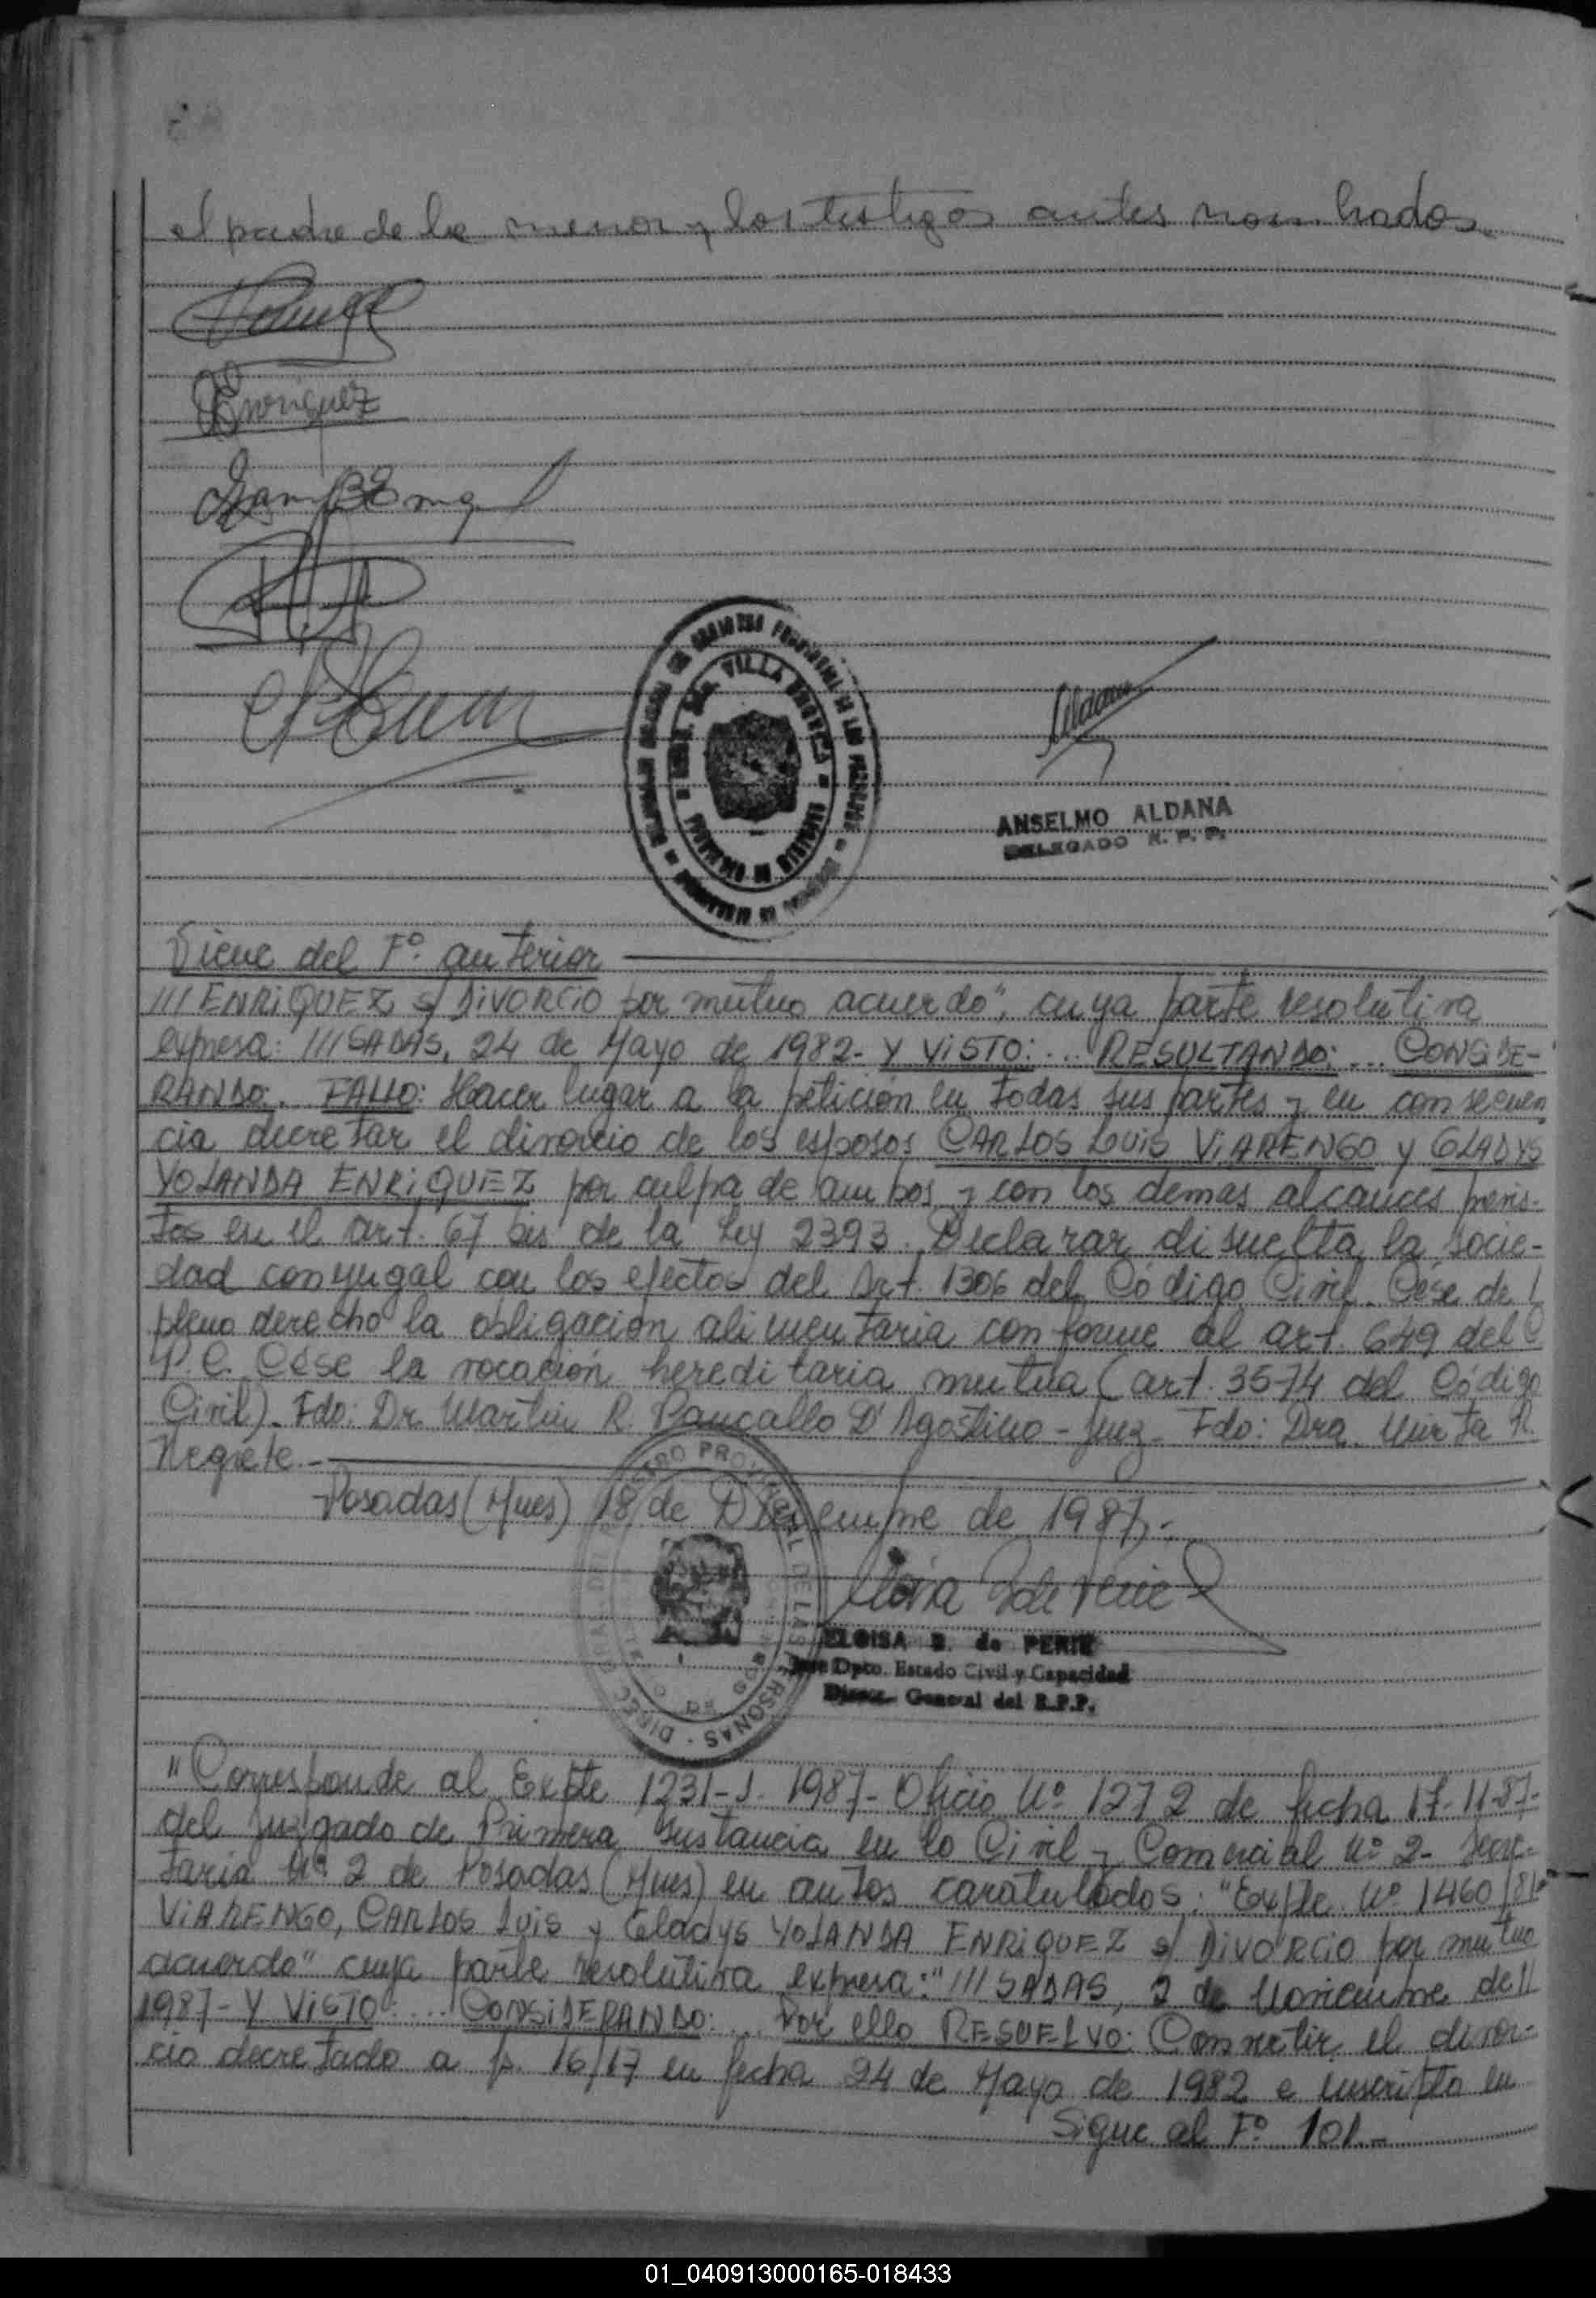 el padre de la menor y los testigos antes nombrados.
Enriquez
VILLA
ANSELMO ALDANA
DELEGADO R. P. P.
Viene del Fº anterior
///ENRIQUEZ s/ DIVORCIO por mutuo acuerdo", cuya parte resolutiva
expresa: ///SADAS, 24 de Mayo de 1982- Y VISTO: ... RESULTANDO: ... CONSIDE-
RANDO: FALLO: Hacer lugar a la petición en todas sus partes y en consecuen
cia decretar el divorcio de los esposos CARLOS LUIS VIARENGO y GLADYS
YOLANDA ENRIQUEZ por culpa de ambos y con los demas alcances previs-
tos en el art. 67 bis de la Ley 2393. Declarar disuelta la socie-
dad conyugal con los efectos del Art. 1306 del Código Civil. Cese de
pleno derecho la obligación alimentaria conforme al art. 649 del C
P.C. Cese la vocación hereditaria mutua (art. 3574 del Código
Civil). Fdo: Dr. Martin R. D'Agostino - Juez- Fdo: Dra. Mirta R.
Negrete.-
Posadas (Mnes) 18 de Diciembre de 1987.-
ELOISA B. de PERIE
Jefe Dpto. Estado Civil y Capacidad
Direcc. General del R.P.P.
"Corresponde al Expte 1231-J- 1987- Oficio Nº 1272 de fecha 17-11-87-
del Juzgado de Primera Instancia en lo Civil y Comercial Nº 2- Secre-
taria Nº 2 de Posadas (Mnes) en autos caratulados: "Expte. Nº 1460/81-
VIARENGO, CARLOS Luis y Gladys YOLANDA ENRIQUEZ s/ DIVORCIO por mutuo
acuerdo" cuya parte resolutiva expresa: "///SADAS, 2 de Noviembre de//
1987- Y VISTO: ... CONSIDERANDO: ... Por ello RESUELVO: Convertir el divor-
cio decretado a fs. 16/17 en fecha 24 de Mayo de 1982 e inscripto en
Sigue al Fº 101.-
01_040913000165-018433